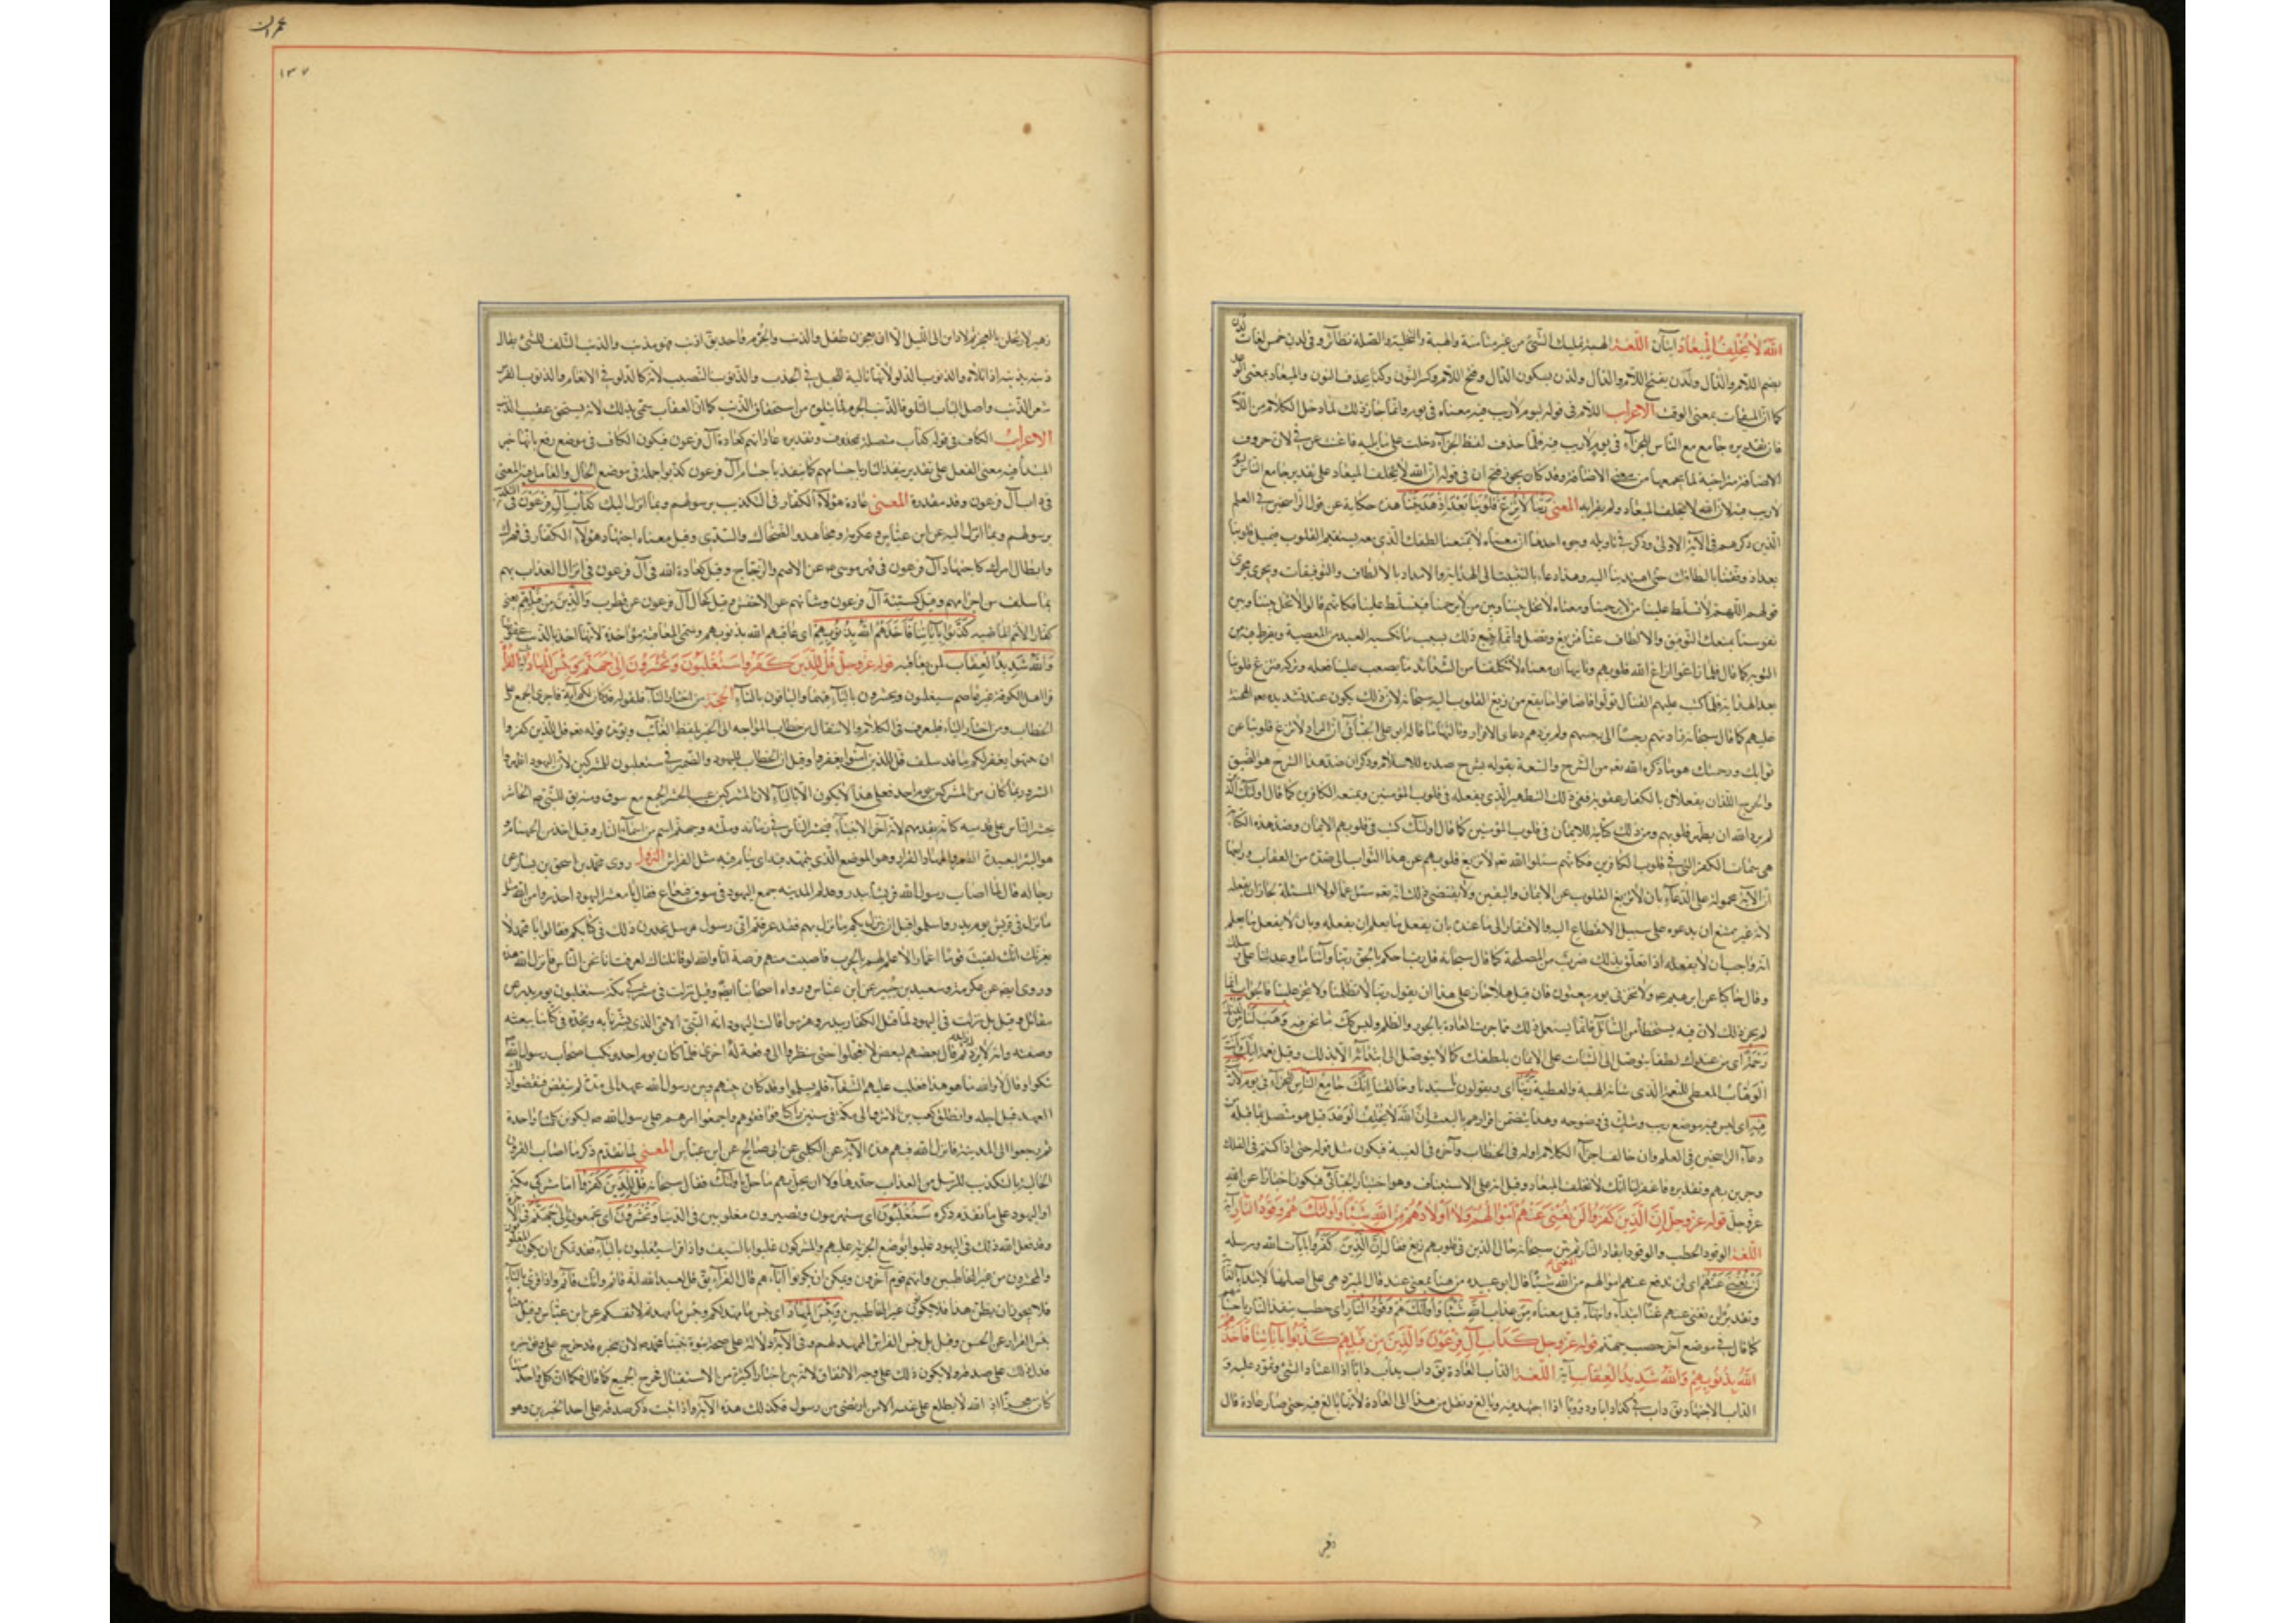 اللّهَ لا يُخْلِفُ المِيعادَ آيتان اللغة الهبة تمليك الشئ من غير مثامنة والهبة والنحلة والصلة نظائر وفى لدن خمس لغات لدن
بضم اللام والدال ولدن بفتح اللام والدال ولدن بسكون الدال وفتح اللام وكسر النون ولد بحذف النون والميعاد بمعنى الوعد
كما ان الميقات بمعنى الوقت الاعراب اللام فى قوله ليوم لا ريب فيه معناه فى يوم وانما جاز ذلك لما دخل الكلام من اللام
فان تقديره جامع مع الناس للجزاء فى يوم لا ريب فيه فلما حذف لفظ الجزاء دخلت على ما يليه فاغنت عن فى لان حروف
الاضافة متواخية لما يجمعها من معنى الاضافة وقد كان يجوز فتح ان فى قوله ان الله لا يخلف الميعاد على تقدير جامع الناس ليوم
لا ريب فيه لان الله لا يخلف الميعاد ولم يقرأ به المعنى رَبَّنا لا تُزِغْ قُلُوبَنا بَعْدَ اِذْ هَدَيْتَنا هذه حكاية عن قول الراسخين فى العلم
الذين ذكرهم فى الآية الاولى وذكر فى تاويله وجوه احدها ان معناه لا تمنعنا لطفك الذى معه يستقيم القلوب فيميل قلوبنا
بعد اذ وفقتنا بالطافك حتى اهتدينا اليه وهذا دعاء بالتثبيت الى الهداية والامداد بالالطاف والتوفيقات ويجرى مجرى
قولهم اللهم لا تسلط علينا من لا يرحمنا ومعناه لا تخل بيننا وبين من لا يرحمنا فيتسلط علينا فكانهم قالوا لا تخل بيننا وبين
نفوسنا بمنعك التوفيق والالطاف عنا فنزيغ ونضل وانما يمنع ذلك بسبب ما يكسبه العبد من المعصية ويفرط فيه من
التوبة كما قال فلما زاغوا ازاغ الله قلوبهم وثانيها ان معناه لا تكلفنا من الشدائد ما يصعب علينا فعله وتركه فتزيغ قلوبنا
بعد الهداية فلما كتب عليهم القتال تولوا فاضافوا ما يقع من زيغ القلوب اليه سبحانه لان ذلك يكون عند تشديده تعه المحنة
عليهم كما قال سبحانه زادتهم رجسا الى رجسهم ولم يزدهم دعاى الا فرارا وثالثها ما قاله ابو على الجبائى ان المراد لا تزغ قلوبنا عن
ثوابك ورحمتك هو ما ذكره الله تعه من الشرح والسعة بقوله يشرح صدره للاسلام وذكر ان ضد هذا الشرح هو الضيق
والحرج اللذان يفعلان بالكفار عقوبة فمن ذلك التطهير الذى يفعله فى قلوب المؤمنين ويمنعه الكافرين كما قال اولئك الذين
لم يرد الله ان يطهر قلوبهم ومن ذلك كتابته للايمان فى قلوب المؤمنين كما قال اولئك كتب فى قلوبهم الايمان وضد هذه الكتابة
هى سمات الكفر التى فى قلوب الكافرين فكانهم سئلوا الله تعه لا تزيغ قلوبهم عن هذا الثواب الى ضده من العقاب ورابعها
ان الآية محمولة على الدعاء بان لا تزيغ القلوب عن الايمان واليقين ولا يقتضى ذلك انه تعه سئل عما لولا المسئلة لجاز ان يفعله
لانه غير ممتنع ان يدعوه على سبيل الانقطاع اليه والافتقار الى ما عنده بان يفعل ما يعلم ان يفعله وبان لا يفعل ما يعلم
انه واجب ان لا يفعله اذا تعلق بذلك ضرب من المصلحة كما قال سبحانه قل رب احكم بالحق ربنا وآتنا ما وعدتنا على رسلك
وقال حاكيا عن ابرهيم ع ولا تخزنى يوم يبعثون فان قيل هلا جاز على هذا ان يقول ربنا لا تظلمنا ولا تجر علينا فالجواب انما
لم يجز ذلك لان فيه تسخطا من السائل وانما يستعمل ذلك فيما جرت العادة بالجور والظلم وليس كك ما نحن فيه وَهَبْ لَنا مِنْ لَدُنْكَ
رَحْمَةً اى من عندك لطفا يتوصل الى الثبات على الايمان بلطفك كما لا يتوصل الى ابتدائه الا بذلك وقيل نعمة اِنَّكَ اَنْتَ
الْوَهّابُ المعطى للنعمة الذى شانه الهبة والعطية رَبَّنا اى ويقولون يا سيدنا وخالقنا اِنَّكَ جامِعُ النّاسِ للجزاء فى يوم لا رَيْبَ
فِيهِ اى ليس فيه موضع ريب وشك فى وضوحه وهذا يتضمن اقرارهم بالبعث اِنَّ اللهَ لا يُخْلِفُ الوعد قيل هو متصل بما قبله من
دعاء الراسخين فى العلم وان خالف اخر الكلام اوله فى الخطاب وآخره فى الغيبة فيكون مثل قوله حتى اذا كنتم فى الفلك
وجرين بهم وتقديره فاغفر لنا انك لا تخلف الميعاد وقيل انه على الاستيناف وهو اختيار الجبائى فيكون اخبارا عن الله
عزوجل قوله عزوجل اِنَّ الَّذِينَ كَفَرُوا لَنْ تُغْنِيَ عَنْهُمْ اَمْوالُهُمْ وَلا اَوْلادُهُمْ مِنَ اللهِ شَيْئًا وَاُولئِكَ هُمْ وَقُودُ النّارِ آية
اللغة الوقود الحطب والوقود ايقاد النار ثم بين سبحانه حال الذين فى قلوبهم زيغ فقال اِنَّ الَّذِينَ كَفَرُوا بآيات الله ورسله
لَنْ تُغْنِيَ عَنْهُمْ اى لن تدفع عنهم اموالهم من الله شَيْئًا قال ابو عبيدة من هنا بمعنى عند قال المبرد هى على اصلها لابتداء الغاية
وتقديره لن تغنى عنهم غنا ابتداء وانتهاء وقيل معناه مِنَ عذاب اللهِ شَيْئًا وَاُولئِكَ هُمْ وَقُودُ النّارِ اى حطب تتقد النار باجسامهم
كما قال فى موضع آخر حصب جهنم قوله عزوجل كَدَأْبِ آلِ فِرْعَوْنَ وَالَّذِينَ مِنْ قَبْلِهِمْ كَذَّبُوا بِآياتِنا فَاَخَذَهُمُ
اللهُ بِذُنُوبِهِمْ وَاللهُ شَدِيدُ الْعِقابِ آية اللغة الدأب العادة يق دأب يدأب دأبا اذا اعتاد الشئ وتمرن عليه و
الدأب الاجتهاد يق دأب فى كذا دأبا ودؤوبا اذا اجتهد فيه وبالغ ونقل من هذا الى العادة لانه بالغ فيه حتى صار عادة قال
زهير
عمران
١٣٧
زهير لارتحلن بالفجر ثم لادابن الى الليل الا ان يعرجنى طفل والذنب والجرم واحد يق اذنب فهو مذنب والذنب التلو للشئ يقال
ذنبه يذنبه اذا تلاه والذنوب الدلو لانها تالية للحبل فى الجذب والذنوب النصيب لانه كالدلو فى الانعام والذنوب الفرس
شعر الذنب واصل الباب التلو فالذنب الجرم لما يتلوه من استحقاق الذنب كما ان العقاب سمى بذلك لانه يستحق عقيب الذنب
الاعراب الكاف فى قوله كدأب متصلة بمحذوف وتقديره عادتهم كعادة آل فرعون فيكون الكاف فى موضع رفع بانها خبر
المبتدأ فيه معنى الفعل على تقدير يتقد النار باجسامهم كما يتقد باجسام آل فرعون كذبوا جملة فى موضع الحال والعامل فيه المعنى
فى دأب آل فرعون وقد مقدرة المعنى عادة هؤلاء الكفار فى التكذيب برسولهم وبما انزل اليك كَدَأْبِ آلِ فِرْعَوْنَ فى التكذيب
برسولهم وبما انزل اليه عن ابن عباس وعكرمة ومجاهد والضحاك والسدى وقيل معناه اجتهاد هؤلاء الكفار فى قهرك
وابطال امرك كاجتهاد آل فرعون فى قهر موسى ع عن الاصم والزجاج وقيل كعادة الله فى آل فرعون فى انزال العذاب بهم
بما سلف من اجرامهم وقيل كسنة آل فرعون وشانهم عن الاخفش وقيل كحال آل فرعون عن قطرب وَالَّذِينَ مِنْ قَبْلِهِمْ يعنى
كفار الامم الماضية كَذَّبُوا بِآياتِنا فَاَخَذَهُمُ اللهُ بِذُنُوبِهِمْ اى عاقبهم الله بذنوبهم وسمى المعاقبة مؤاخذة لانها اخذ بالذنب عقوبة
وَاللهُ شَدِيدُ الْعِقابِ لمن يعاقبه قوله عزوجل قُلْ لِلَّذِينَ كَفَرُوا سَتُغْلَبُونَ وَتُحْشَرُونَ اِلى جَهَنَّمَ وَبِئْسَ الْمِهادُ آية القراءة
قرأ اهل الكوفة غير عاصم سيغلبون ويحشرون بالياء فيهما والباقون بالتاء الحجة من اختار التاء فلقوله قد كان لكم آية فاجرى الجميع على
الخطاب ومن اختار الياء فليصرف فى الكلام والانتقال من خطاب المواجه الى الخبر بلفظ الغائب ويؤيده قوله تعه قل للذين كفروا
ان ينتهوا يغفر لهم ما قد سلف قل للذين آمنوا يغفروا وقيل ان الخطاب لليهود والضمير فى ستغلبون للمشركين لان اليهود اظهروا
السرور بما كان من المشركين يوم احد فعلى هذا لا يكون الا بالياء لان المشركين غيب الحشر الجمع مع سوق ومنه يق للنبى ص الحاشر
يحشر الناس على قدميه كانه يقدمهم لانه آخر الانبياء فيحشر الناس فى زمانه وملته وجهنم اسم من اسماء النار وقيل اخذ من الجهنام و
هو البئر البعيدة القعر والمهاد القرار وهو الموضع الذى يتمهد فيه اى ينام فيه مثل الفراش النزول روى محمد بن اسحق بن يسار عن
رجاله قال لما اصاب رسول الله قريشا ببدر وقدم المدينة جمع اليهود فى سوق قينقاع فقال يا معشر اليهود احذروا من الله مثل
ما نزل فى قريش يوم بدر واسلموا قبل ان ينزل بكم ما نزل بهم فقد عرفتم انى رسول مرسل تجدون ذلك فى كتابكم فقالوا يا محمد لا
يغرنك انك لقيت قوما اغمارا لا علم لهم بالحرب فاصبت منهم فرصة انا والله لو قاتلناك لعرفت انا نحن الناس فانزل الله هذه
وروى ايض عن عكرمة وسعيد بن جبير عن ابن عباس ورواه اصحابنا ايض وقيل نزلت فى مشركى مكة ستغلبون يوم بدر عن
مقاتل وقيل بل نزلت فى اليهود لما قتل الكفار ببدر وهزموا قالت اليهود انه النبى الامى الذى بشرنا به ونجده فى كتابنا بنعته
وصفته وانه لا ترد له راية ثم قال بعضهم لبعض لا تعجلوا حتى تنظروا الى وقعة له اخرى فلما كان يوم احد ونكب اصحاب رسول الله
شكوا وقالوا لا والله ما هو هذا فغلب عليهم الشقاء فلم يسلموا وقد كان بينهم وبين رسول الله عهد الى مدة لم تنقض فنقضوا ذلك
العهد قبل اجله وانطلق كعب بن الاشرف الى مكة فى ستين راكبا فوافقوهم واجمعوا امرهم على رسول الله ص ليكونن كلمتنا واحدة
ثم رجعوا الى المدينة فانزل الله فيهم هذه الآية عن الكلبى عن ابى صالح عن ابن عباس المعنى لما تقدم ذكر ما اصاب القرون
الخالية بالتكذيب للرسل من العذاب حذر هؤلاء ان يحل بهم ما حل باولئك فقال سبحانه قُلْ لِلَّذِينَ كَفَرُوا اما مشركى مكة
او اليهود على ما تقدم ذكره سَتُغْلَبُونَ اى ستهزمون وتصيرون مغلوبين فى الدنيا وَتُحْشَرُونَ اى تجمعون اِلى جَهَنَّمَ فى الآخرة
وقد فعل الله ذلك فى اليهود غلبوا بوضع الجزية عليهم والمشركون غلبوا بالسيف واذا قرئ سيغلبون بالياء فقد يمكن ان يكون المغلوبون
والمحشرون من غير المخاطبين وانهم قوم آخرون ويمكن ان يكونوا اياهم قال الفراء يق قل لعبد الله انه قائم وانك قائم واذا قرئ بالتاء
فلا يجوز ان يظن هذا فلا يكونون غير المخاطبين وَبِئْسَ الْمِهادُ اى بئس ما مهد لكم وبئس ما مهدتم لانفسكم عن ابن عباس وقيل معناه
بئس القرار عن الحسن وقيل بل بئس الفراش الممهد لهم وفى الآية دلالة على صحة نبوة نبينا محمد ص لان مخبره قد خرج على وفق خبره
فدل ذلك على صدقه ولا يكون ذلك على وجه الاتفاق لانه بين اخبارا كثيرة من الاستقبال فخرج الجميع كما قال فكما ان كل واحد منها
كان معجزا اذ الله لا يطلع على غيبه الا من ارتضى من رسول فكذلك هذه الآية واذا ثبت ذكر صدقه على احد الخبرين وهو